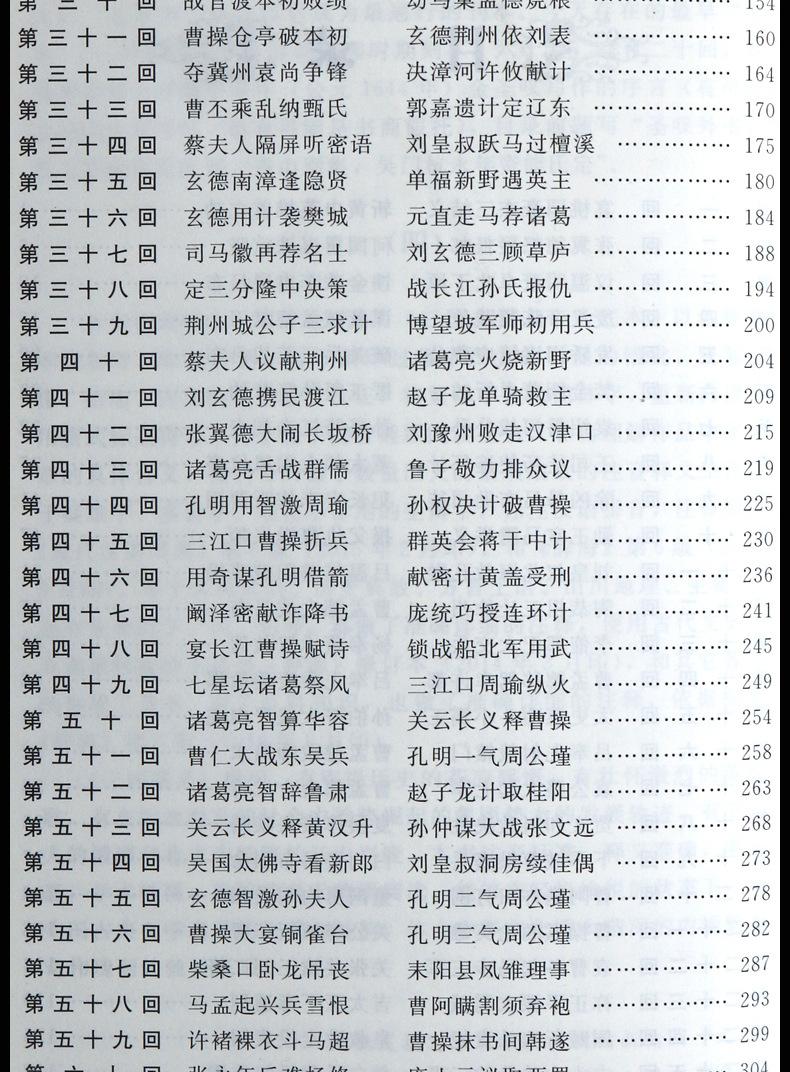 第三十回 战官渡本初败绩 劫乌巢孟德烧粮 ………… 154
第三十一回 曹操仓亭破本初 玄德荆州依刘表 ………… 160
第三十二回 夺冀州袁尚争锋 决漳河许攸献计 ………… 164
第三十三回 曹丕乘乱纳甄氏 郭嘉遗计定辽东 ………… 170
第三十四回 蔡夫人隔屏听密语 刘皇叔跃马过檀溪 ………… 175
第三十五回 玄德南漳逢隐贤 单福新野遇英主 ………… 180
第三十六回 玄德用计袭樊城 元直走马荐诸葛 ………… 184
第三十七回 司马徽再荐名士 刘玄德三顾草庐 ………… 188
第三十八回 定三分隆中决策 战长江孙氏报仇 ………… 194
第三十九回 荆州城公子三求计 博望坡军师初用兵 ………… 200
第四十回 蔡夫人议献荆州 诸葛亮火烧新野 ………… 204
第四十一回 刘玄德携民渡江 赵子龙单骑救主 ………… 209
第四十二回 张翼德大闹长坂桥 刘豫州败走汉津口 ………… 215
第四十三回 诸葛亮舌战群儒 鲁子敬力排众议 ………… 219
第四十四回 孔明用智激周瑜 孙权决计破曹操 ………… 225
第四十五回 三江口曹操折兵 群英会蒋干中计 ………… 230
第四十六回 用奇谋孔明借箭 献密计黄盖受刑 ………… 236
第四十七回 阚泽密献诈降书 庞统巧授连环计 ………… 241
第四十八回 宴长江曹操赋诗 锁战船北军用武 ………… 245
第四十九回 七星坛诸葛祭风 三江口周瑜纵火 ………… 249
第五十回 诸葛亮智算华容 关云长义释曹操 ………… 254
第五十一回 曹仁大战东吴兵 孔明一气周公瑾 ………… 258
第五十二回 诸葛亮智辞鲁肃 赵子龙计取桂阳 ………… 263
第五十三回 关云长义释黄汉升 孙仲谋大战张文远 ………… 268
第五十四回 吴国太佛寺看新郎 刘皇叔洞房续佳偶 ………… 273
第五十五回 玄德智激孙夫人 孔明二气周公瑾 ………… 278
第五十六回 曹操大宴铜雀台 孔明三气周公瑾 ………… 282
第五十七回 柴桑口卧龙吊丧 耒阳县凤雏理事 ………… 287
第五十八回 马孟起兴兵雪恨 曹阿瞒割须弃袍 ………… 293
第五十九回 许褚裸衣斗马超 曹操抹书间韩遂 ………… 299
第六十回 ………… 304